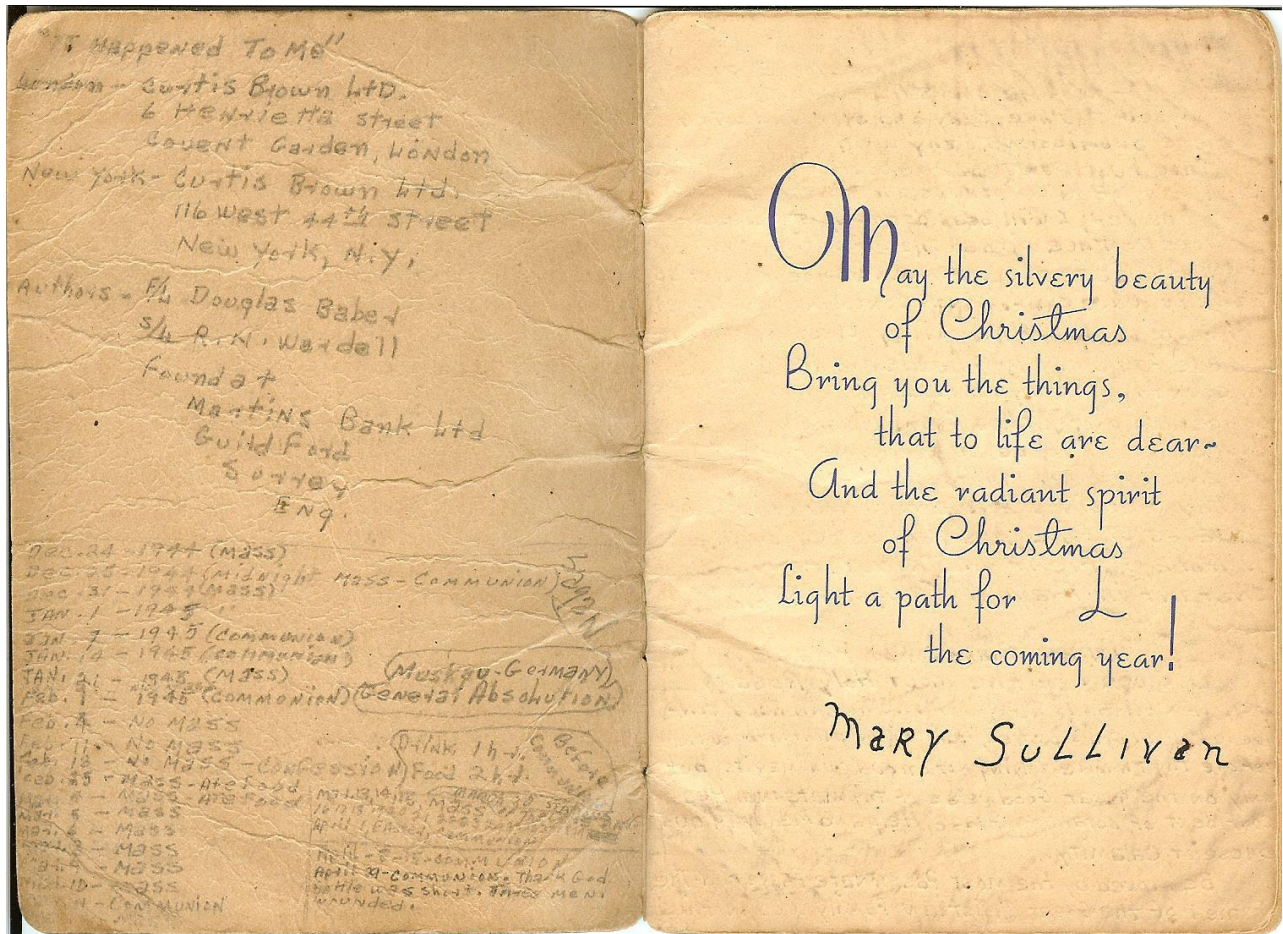 "It Happened To Me"
London - Curtis Brown Ltd.
6 Henrietta Street
Covent Garden, London
New York - Curtis Brown Ltd.
116 West 44th Street
New York, N.Y.
Authors - F/L Douglas Baber
S/L R.N. Wardell
Found at
Martins Bank Ltd
Guildford
Surrey
Eng.
Dec. 24 - 1944 (Mass)
Dec. 25 - 1944 (Midnight Mass - Communion)
Dec. 31 - 1944 (Mass)
Jan. 1 - 1945 "
Jan. 7 - 1945 (Communion)
Jan. 14 - 1945 (Communion)
Jan. 21 - 1945 (Mass)
Feb. 1 - 1945 (Communion)
(Muskau - Germany)
(General Absolution)
Feb. 4 - No Mass
Feb. 11 - No Mass
Feb. 18 - No Mass - (Confession)
Feb. 25 - Mass - Ate Food
Mass Ate Food
Mass
Mass
Mass
Mass
10 - Mass
Communion
Drink 1 hr.
Food 2 hr.
Before Communion
April 1, Easter, Communion
April - 8 - 15 - Communion
April 29 - Communion. Thank God
battle was short. Three men
wounded.
May the silvery beauty
of Christmas
Bring you the things,
that to life are dear~
And the radiant spirit
of Christmas
Light a path for L
the coming year!
Mary Sullivan